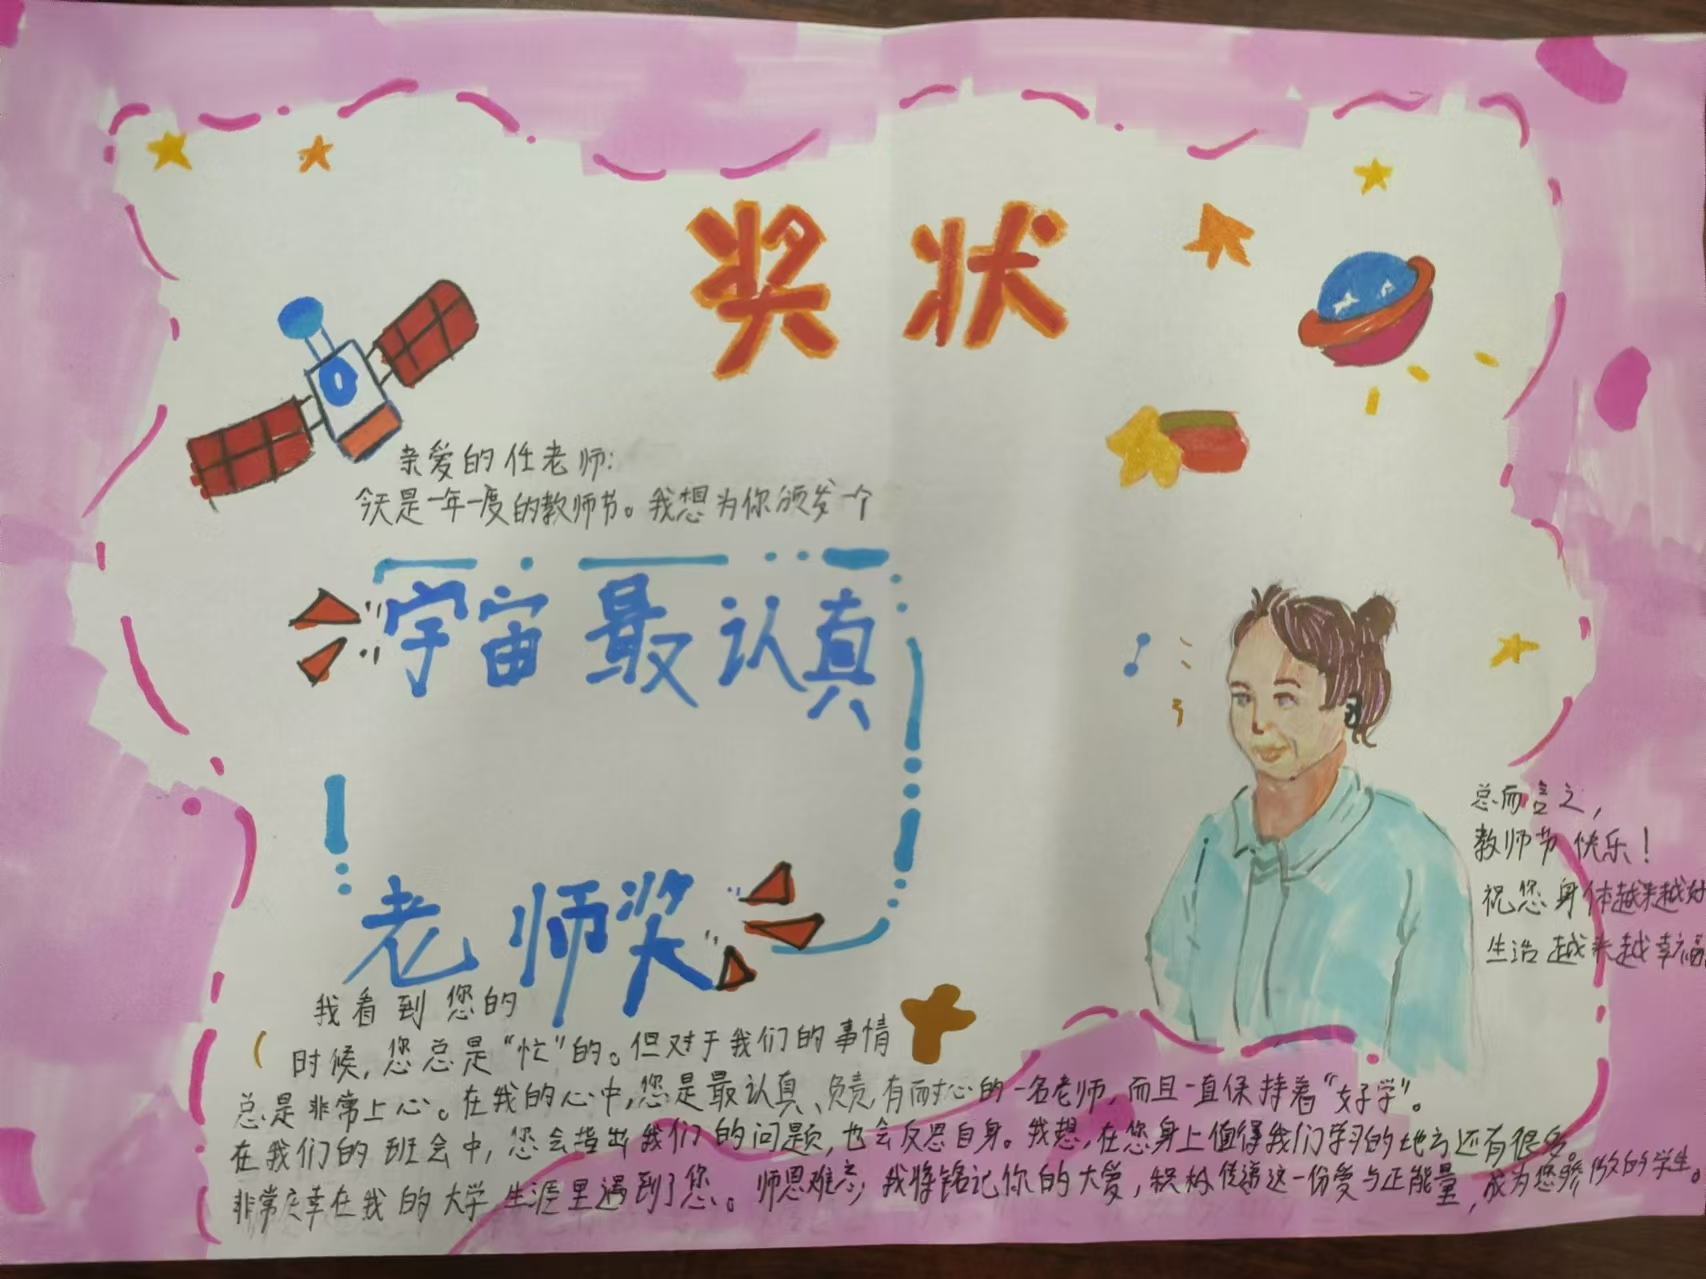 奖状
亲爱的任老师：
今天是一年一度的教师节。我想为你颁发一个
宇宙最认真
老师奖
我看到您的
时候，您总是“忙”的。但对于我们的事情
总是非常上心。在我的心中，您是最认真、负责，有耐心的一名老师，而且一直保持着“好学”。
在我们的班会中，您会指出我们的问题，也会反思自身。我想，在您身上值得我们学习的地方还有很多
非常庆幸在我的大学生涯里遇到了您。师恩难忘，我将铭记你的大爱，积极传递这一份爱与正能量，成为您骄傲的学生。
总而言之，
教师节快乐！
祝您身体越来越好
生活越来越幸福